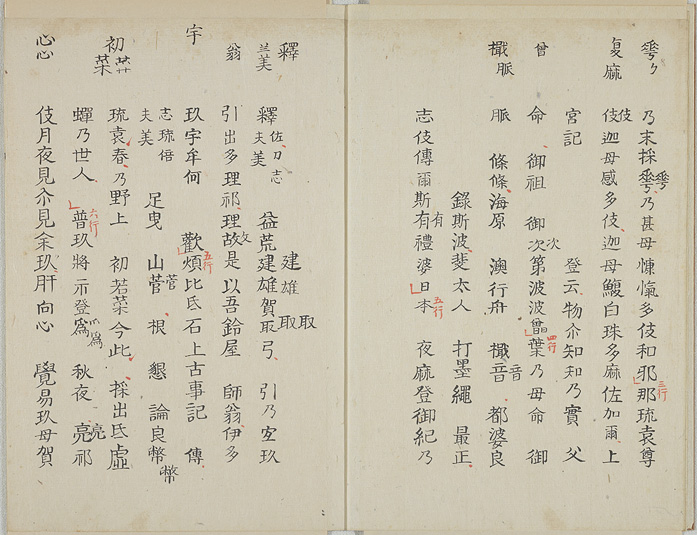 雩々 乃末採雩乃甚母慷愾多伎和邪那琉袁尊
复麻 伎迦母感多伎迦母鰒白珠多麻佐加爾上
宮記 登云物尒知知乃實 父
曾 命 御祖 御次第波波曾葉乃母命 御
檝脈 脈 條條海原 澳行舟 檝音 都婆良
錄斯波斐太人 打墨繩 最正
志伎傳爾斯有禮婆日本 夜麻登御紀乃
釋 兰美 釋佐刀志夫美 益荒建雄賀取弓 引乃室玖
翁 引出多理祁理故是以吾鈴屋 師翁伊多
宇 玖宇牟何 歡煩比氐石上古事記 傳
志琉倍夫美 足曳 山菅 根 懇 論良幣
初菜 琉袁春乃野上 初若菜今此 採出氐虛
蟬乃世人 普玖將示登爲 秋夜 亮祁
心心 伎月夜見尒見余玖肝向心 覺易玖母賀
三行
四行
五行
五行
六行